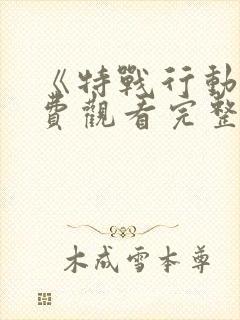 《特戰行動
費觀看完整
木成雪本尊